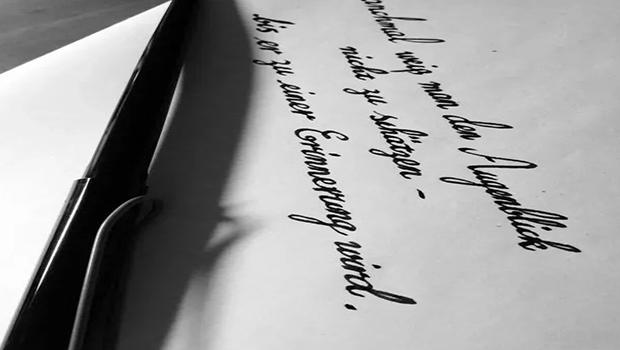 manchmal weiß man den Augenblick
nicht zu schätzen -
bis er zu einer Erinnerung wird.